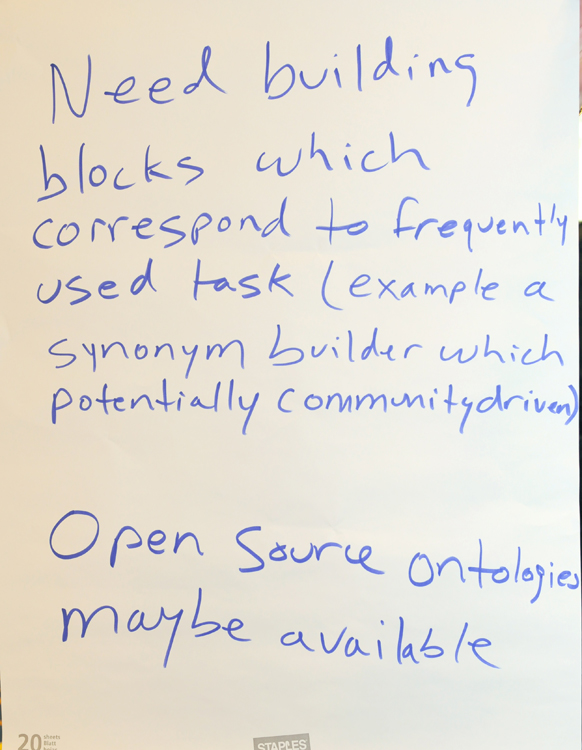 Need building
blocks which
correspond to frequently
used task (example a
synonym builder which
potentially communitydriven)
Open source ontologies
maybe available
20 sheets
Blatt
STAPLES